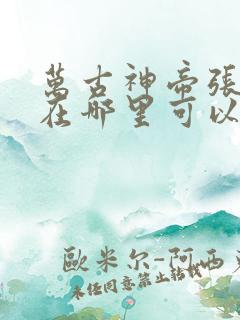 萬古神帝張
在哪里可以
歐米尔-阿西
未任同意禁止轉載